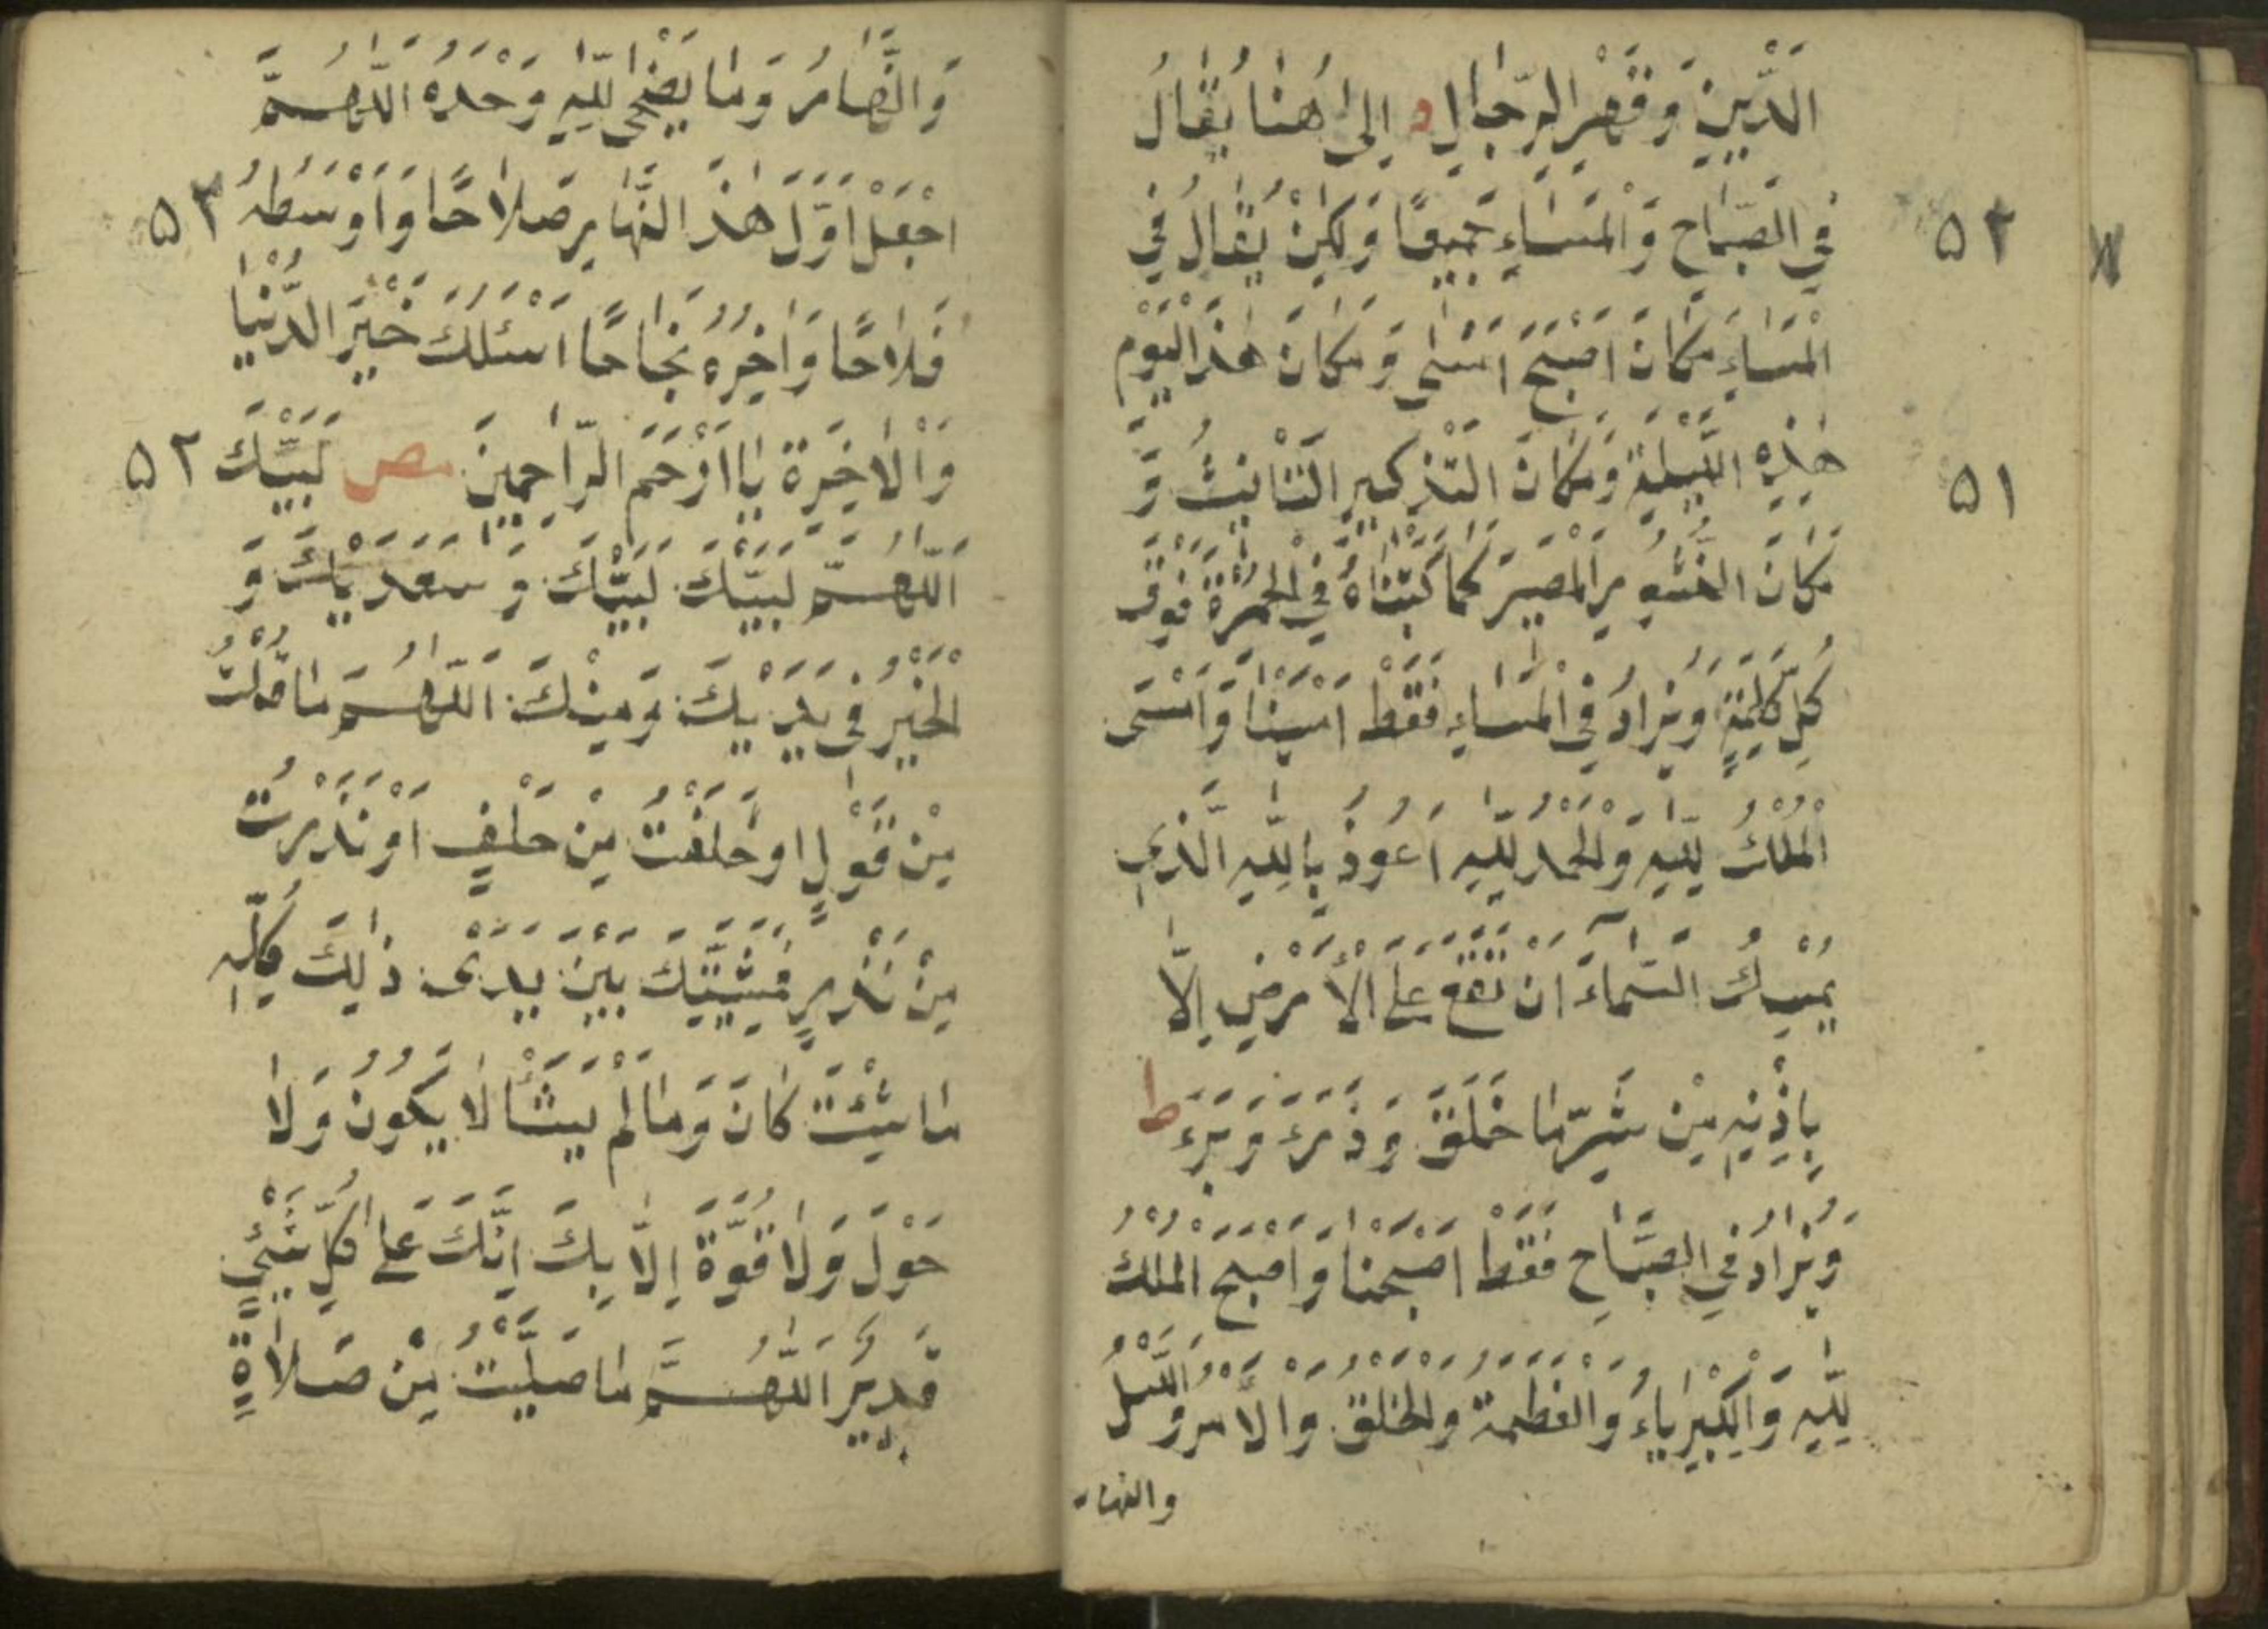 الدَّيْنِ وَقَهْرِ الرِّجَالِ د اِلىٰ هُنَا يُقَالُ
فِي الصَّبَاحِ وَالْمَسَاءِ جَمِيعًا وَلٰكِنْ يُقَالُ فِي
٥٢
الْمَسَاءِ مَكَانَ اَصْبَحَ اَمْسٰى وَمَكَانَ هٰذَالْيَوْمِ
هٰذِهِ اللَّيْلَةِ وَمَكَانَ التَّذْكِيرِ التَّانِيثُ وَ
٥١
مَكَانَ النُّشُورِ الْمَصِيرَ كَمَا كَتَبْنَاهُ فِي الْحُمْرَةِ فَوْقَ
كُلِّ كَلِمَةٍ وَيُزَادُ فِي الْمَسَاءِ فَقَطْ اَمْسَيْنَا وَاَمْسَى
الْمُلْكُ لِلّٰهِ وَلْحَمْدُ لِلّٰهِ اَعُوذُ بِاللّٰهِ الَّذِي
يُمْسِكُ السَّمَآءَ اَنْ تَقَعَ عَلَى الْأَرْضِ اِلَّا
بِاِذْنِهِ مِنْ شَرِّ مَا خَلَقَ وَذَرَءَ وَبَرَءَ ط
وَيُزَادُ فِي الصَّبَاحِ فَقَطْ اَصْبَحْنَا وَاَصْبَحَ الْمُلْكُ
لِلّٰهِ وَالْكِبْرِيَاءُ وَالْعَظَمَةُ وَلْخَلْقُ وَالْاَمْرُ وَاللَّيْلُ
والنهار
وَالنَّهَارُ وَمَا يَضْحٰى لِلّٰهِ وَحْدَهُ اَللّٰهُمَّ
اجْعَلْ اَوَّلَ هٰذَ النَّهَارِ صَلَاحًا وَاَوْسَطَهُ
٥٢
فَلَاحًا وَاٰخِرُهُ نَجَاحًا اَسْئَلُكَ خَيْرَ الدُّنْيَا
وَالْاٰخِرَةِ يَا اَرْحَمَ الرَّاحِمِينَ مص لَبَّيْكَ
٥٢
اَللّٰهُمَّ لَبَّيْكَ لَبَّيْكَ وَسَعْدَيْكَ وَ
الْخَيْرُ فِي يَدَيْكَ وَمِنْكَ اَللّٰهُمَّ مَا قُلْتُ
مِنْ قَوْلٍ اَوْحَلَفْتُ مِنْ حَلْفٍ اَوْ نَذَرْتُ
مِنْ نَذْرٍ فَمَشِيَّتُكَ بَيْنَ يَدَىْ ذٰلِكَ كُلِّهِ
مَا شِئْتَ كَانَ وَمَا لَمْ يَشَأْ لَا يَكُونُ وَلَا
حَوْلَ وَلَا قُوَّةَ اِلَّا بِكَ اِنَّكَ عَلٰى كُلِّ شَيْئٍ
قَدِيرٌ اَللّٰهُمَّ مَا صَلَّيْتُ مِنْ صَلَاةٍ